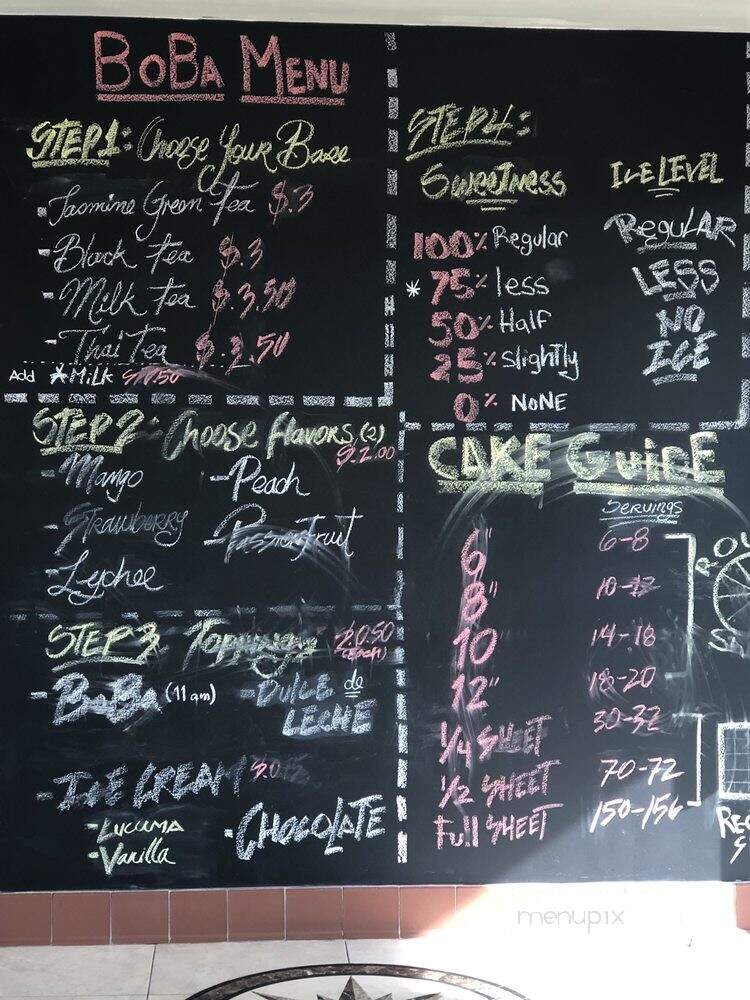 BOBA MENU
STEP1: Choose Your Base
- Jasmine Green Tea $.3
- Black Tea $.3
- Milk Tea $.3.50
- Thai Tea $.3.50
Add *MiLK $0.50
STEP2: Choose flavors (2)
$.2.00
- Mango
- Peach
- Strawberry
- Passionfruit
- Lychee
STEP3 Toppings $0.50
(EACH)
- BoBa (11am)
- DULCE de
LECHE
- ICE CREAM
- LUCUMA
- Vanilla
- CHOCOLATE
STEP4:
Sweetness
ICE LEVEL
100% Regular
* 75% less
50% Half
25% Slightly
0% NONE
RegulAR
LESS
NO
ICE
CAKE GuiDE
Servings
6" 6-8
8"
10 14-18
12" 18-20
1/4 SHEET 30-32
1/2 SHEET 70-72
Full SHEET 150-156
menupix